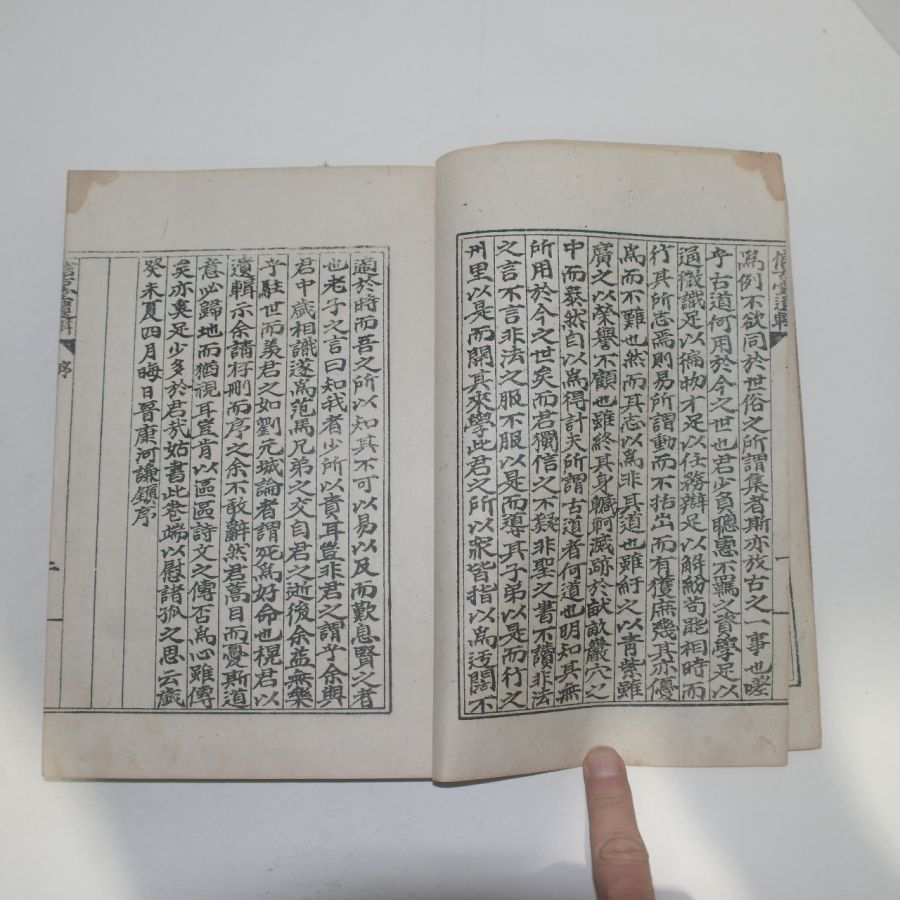 爲例不欲同於世俗之所謂集者斯亦放古之一事也嗟
乎古道何用於今之世也君少負聰惠不羈之資學足以
通微識足以徧物才足以任務辯足以解紛苟能相時而
行其所志焉則易所謂動而不括出而有獲庶幾其亦優
爲而不難也然而其志以爲非其道也雖紆之以靑紫雖
廣之以榮譽不顧也雖終其身轗軻滅跡於畎畝巖穴之
中而泰然自以爲得計夫所謂古道者何道也明知其無
所用於今之世矣而君獨信之不疑非聖之書不讀非法
之言不言非法之服不服以是而導其子弟以是而行之
州里以是而關其來學此君之所以衆皆指以爲迂闊不
適於時而吾之所以知其不可以易以及而歎息賢之者
也老子之言曰知我者少所以貴耳豈非君之謂乎余與
君中歲相識遂爲范馬兄弟之交自君之逝後余益無樂
乎駐世而羨君之如劉元城論者謂死爲好命也棍君以
遺輯示余請存刪而序之余不敢辭然君蒿目而憂斯道
意必歸地而猶視耳豈肯以區區詩文之傳否爲心雖傳
矣亦奚足少多於君哉姑書此卷端以慰諸孤之思云歲
癸未夏四月晦日晉康河謙鎭序
序
二